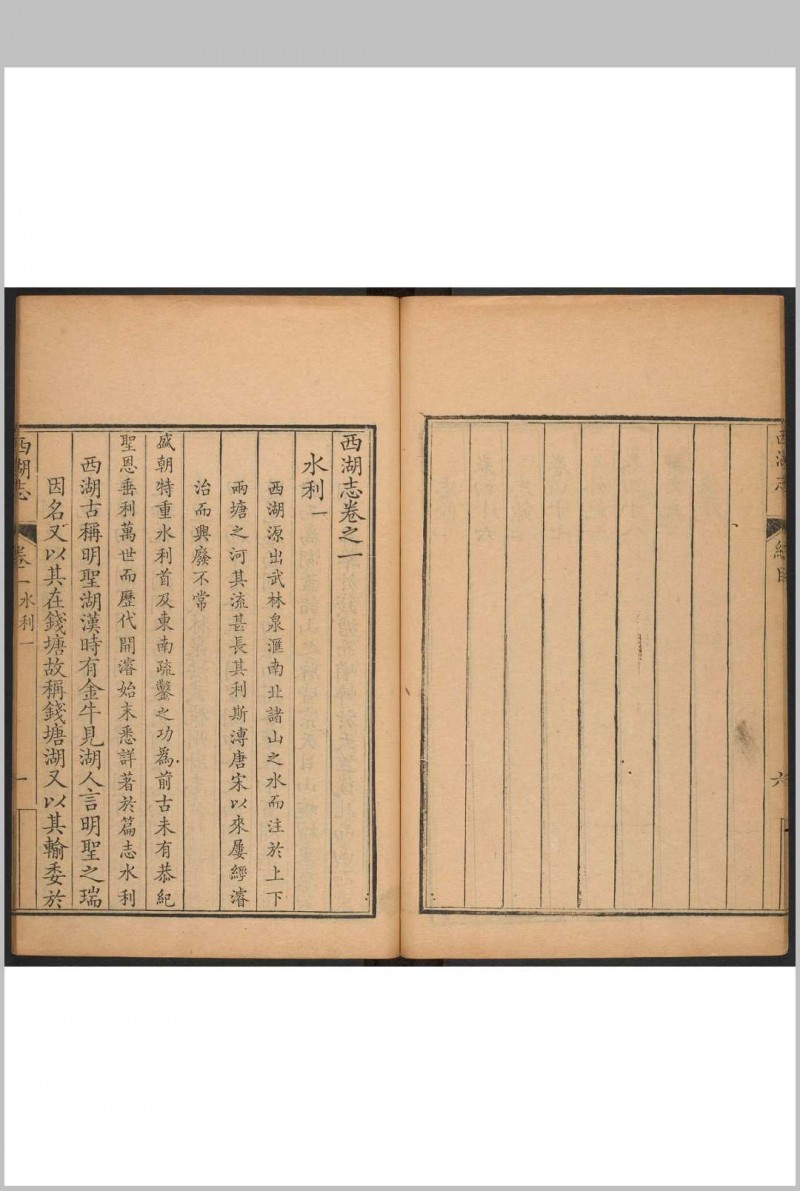 西湖志卷之一
水利一
西湖源出武林泉滙南北諸山之水而注於上下
兩塘之河其流甚長其利斯溥唐宋以來屢經濬
治而興廢不常
盛朝特重水利首及東南疏鑿之功為前古未有恭紀
聖恩垂利萬世而歷代開濬始末悉詳著於篇志水利
西湖古稱明聖湖漢時有金牛見湖人言明聖之瑞
因名又以其在錢塘故稱錢塘湖又以其輸委於
西湖志
卷一
水利一
一
西湖志
六